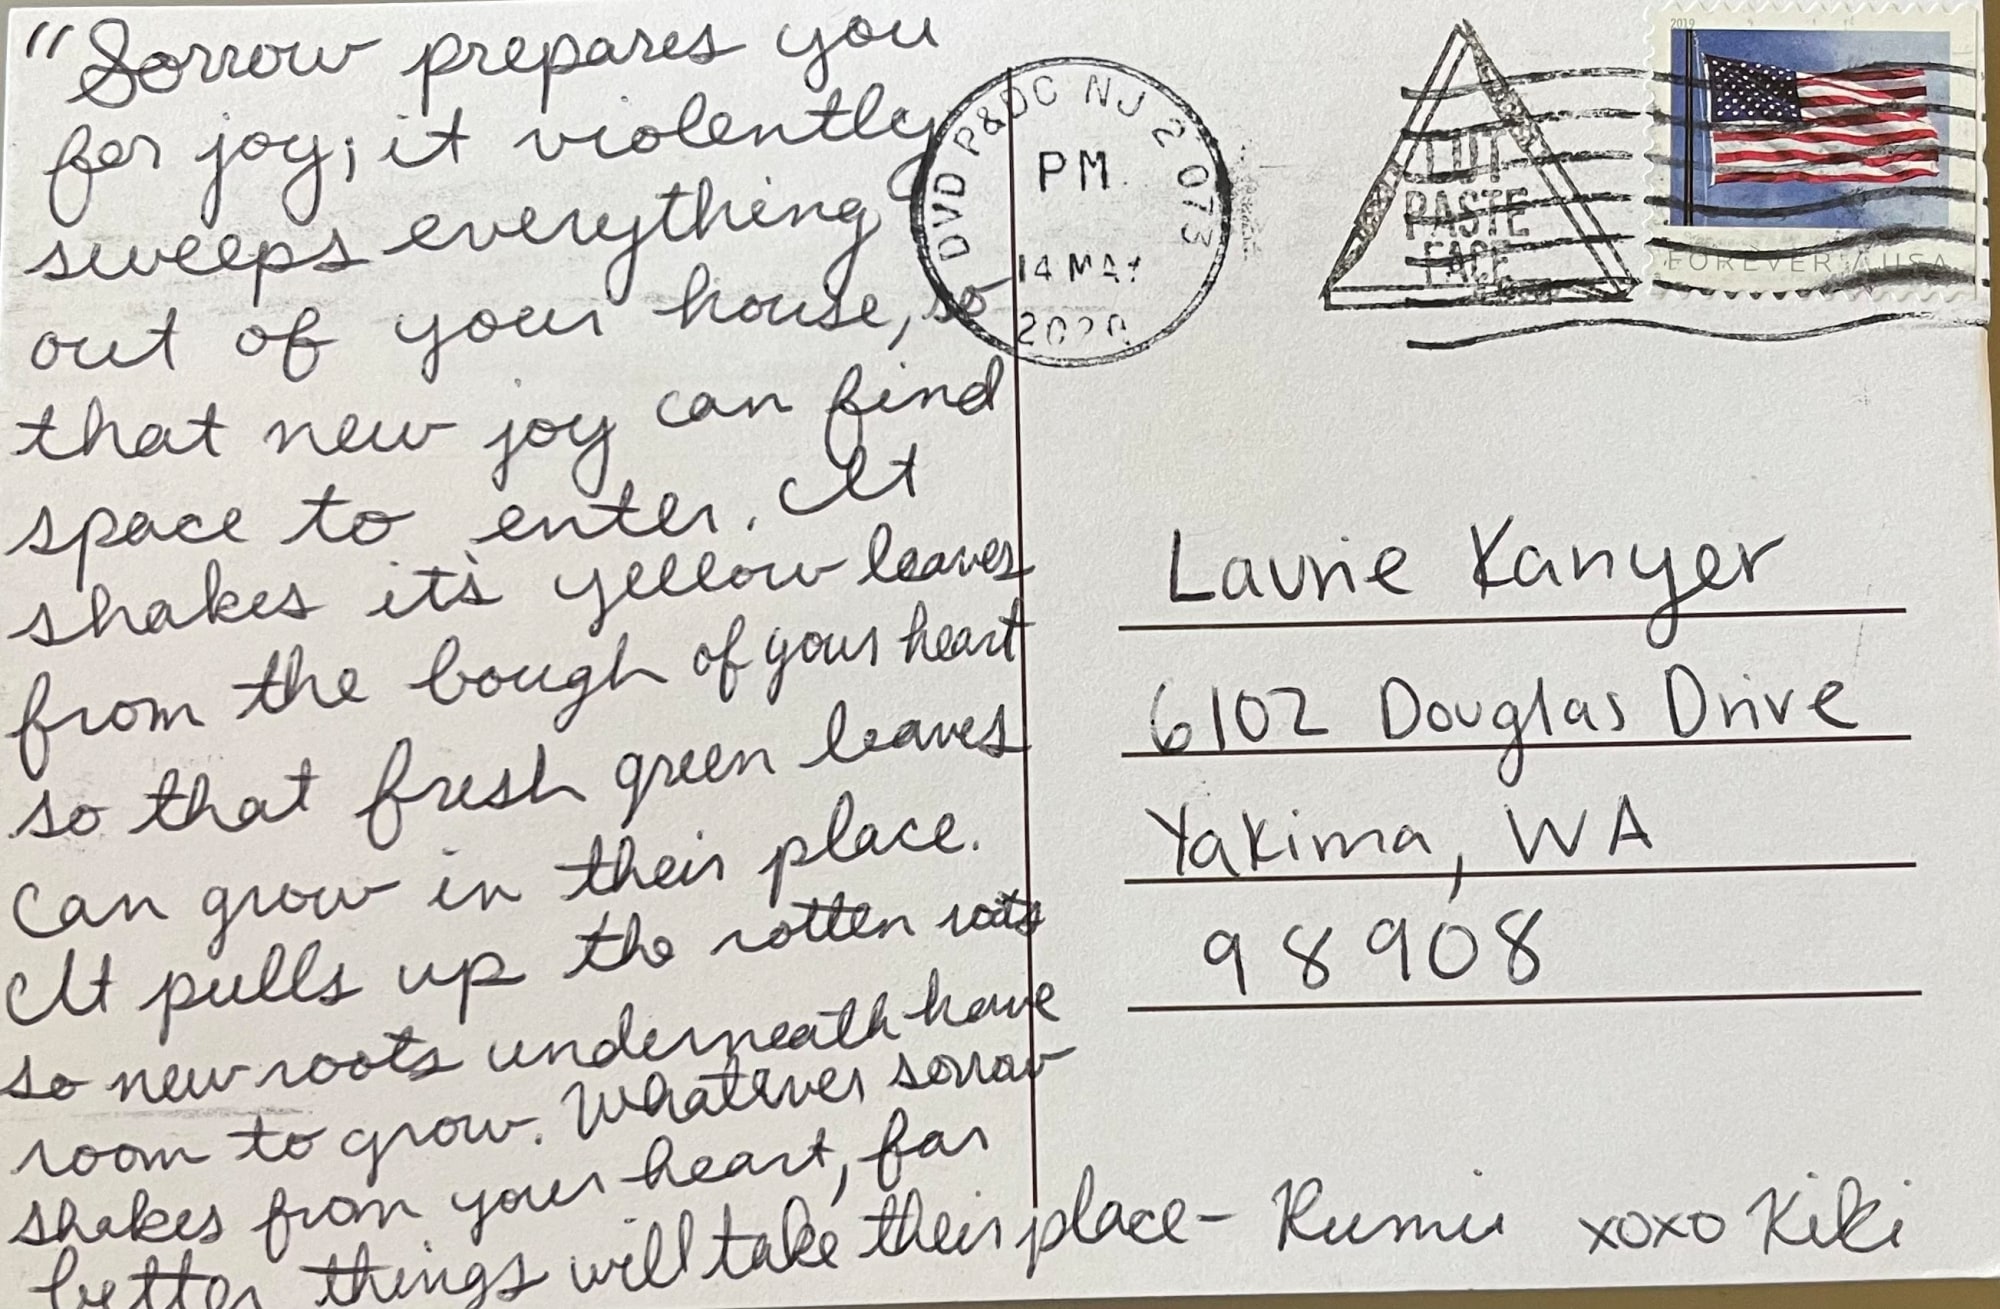 "Sorrow prepares you
for joy; it violently
sweeps everything
out of your house, so
that new joy can find
space to enter. It
shakes it's yellow leaves
from the bough of your heart
so that fresh green leaves
can grow in their place.
It pulls up the rotten roots
so new roots underneath have
room to grow. Whatever sorrow
shakes from your heart, far
better things will take their place - Rumi xoxo Kiki
DVD P&DC NJ 2 073
PM
14 MAY
2020
CUT
PASTE
FACE
2019
FOREVER / USA
Laurie Kanyer
6102 Douglas Drive
Yakima, WA
98908